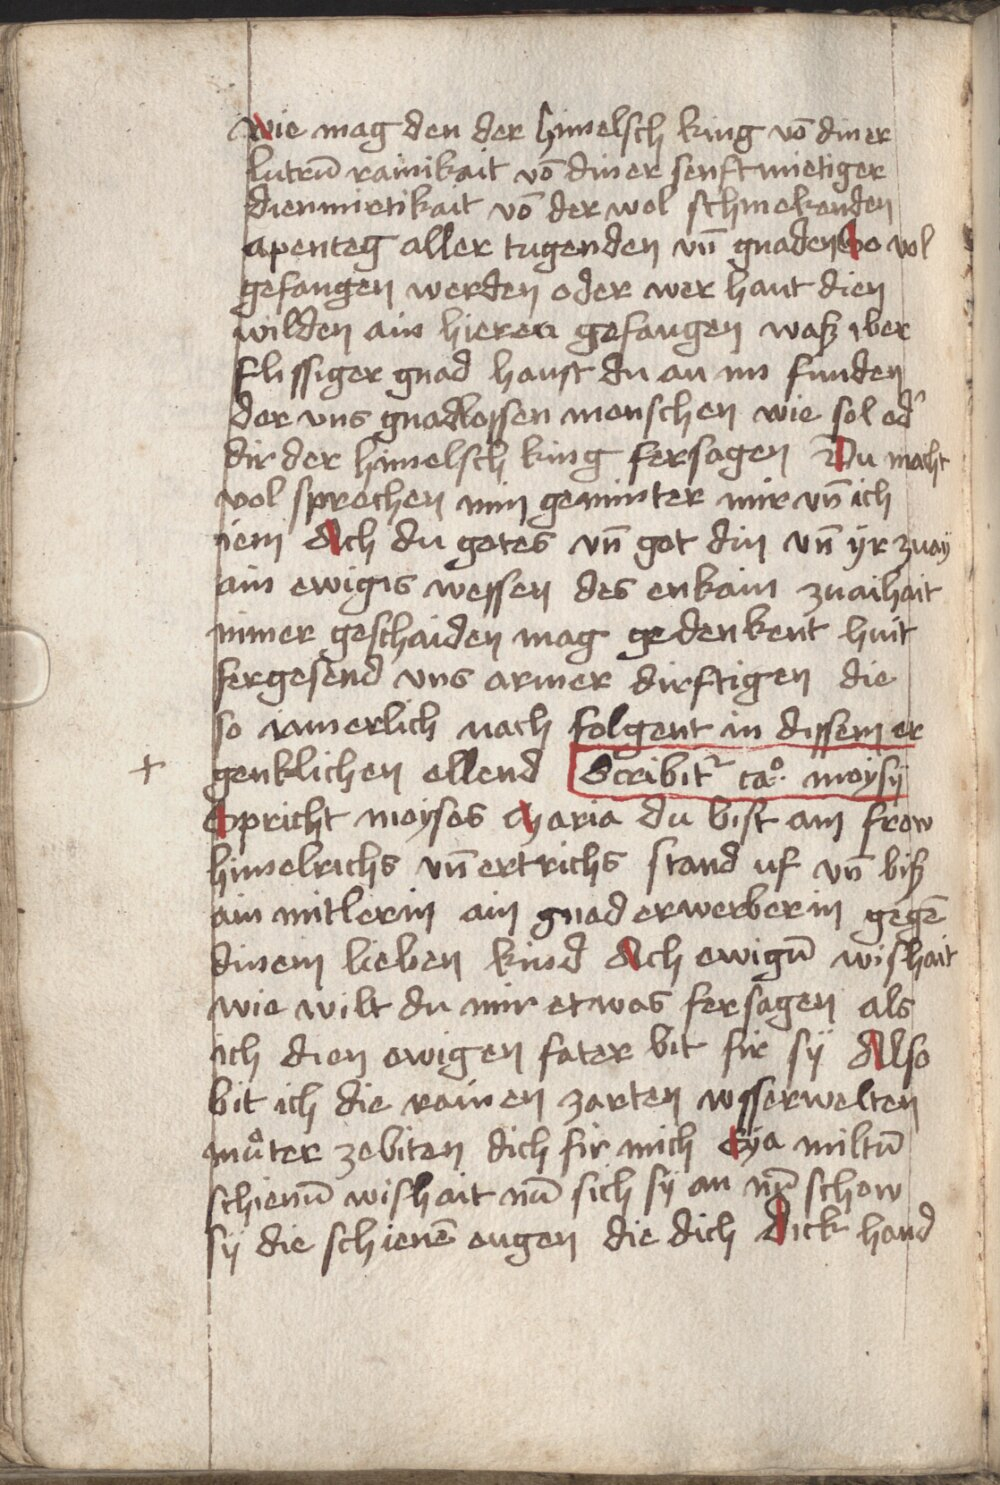 Wie mag den der himelsch king vō diner
lutrū rainikait vō diner senftmietiger
diemmietikait vō der wol schmekenden
apenteg aller tugenden vn̄ gnaden So wol
gefangen werden oder wer haut dien
wilden ain hieren gefangen waß iber
flissiger gnad haust du an im funden
der vns gnadlossen menschen wie sol od'
dir der himelsch king fersagen Du macht
wol sprechen min geminter mir vn̄ ich
iem Ach du gotes vn̄ got din vn̄ ÿr zway
ain ewigis wessen des enkain zuaihait
nimer geschaiden mag gedenkent huit
fergesend vns armer dirftigen die
so iamerlich nach folgent in dissem er
genklichen ellend Scribit² ca°. moysÿ
Spricht moyses Maria du bist ain frow
himelrichs vn̄ ertrichs stand uf vn̄ biß
ain mitlerin ain gnad erwerberin gegē
dinem lieben kind Ach ewigū wishait
wie wilt du mir etwas fersagen als
ich dien ewigen fater bit fir sÿ Also
bit ich die rainen zarten vsserwelten
muͦter zebiten dich fir mich Eÿa miltū
schienū wishait nū sich sÿ an nū schow
sÿ die schienē ougen die dich Dick hand